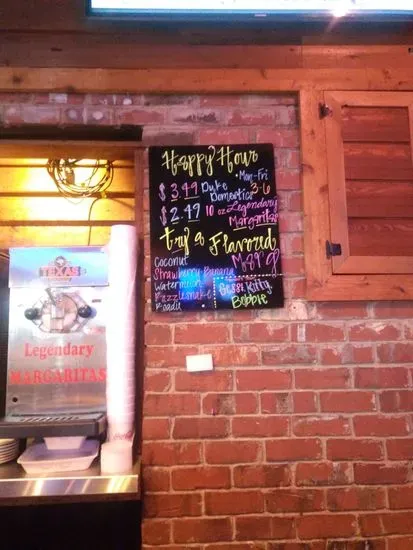 Happy Hour
Mon-Fri
3-6
$3.49 Duke
Domestics
$2.49 10 oz Legendary
Margaritas
Try a Flavored
Marg
Coconut
Strawberry-Banana
Watermelon
Razzlesnake
TEXAS
Legendary
MARGARITAS